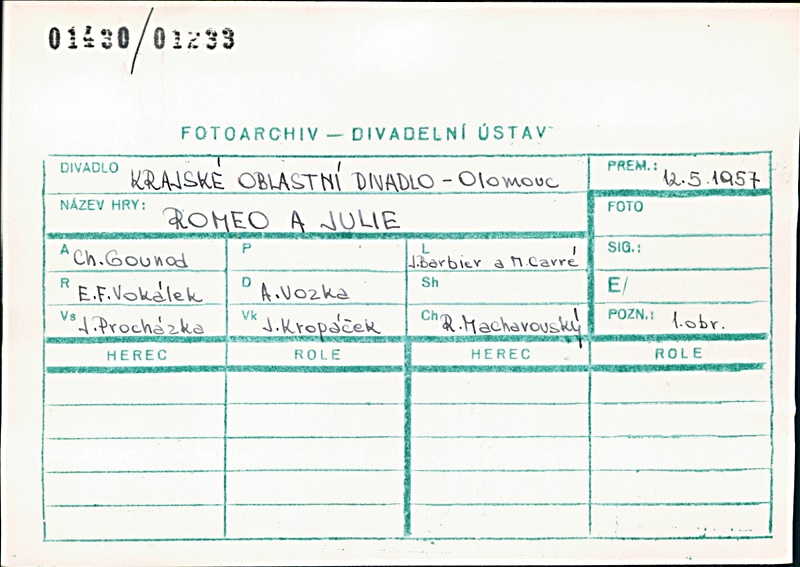 01430/01233
FOTOARCHIV — DIVADELNÍ ÚSTAV
DIVADLO KRAJSKÉ OBLASTNÍ DIVADLO - Olomouc
PREM.: 12.5.1957
NÁZEV HRY: ROMEO A JULIE
FOTO
A Ch. Gounod
P
L J. Barbier a M. Carré
SIG.:
R E.F. Vokálek
D A. Vozka
Sh
E/
Vs J. Procházka
Vk J. Kropáček
Ch R. Macharovský
POZN.: 1. obr.
HEREC ROLE HEREC ROLE